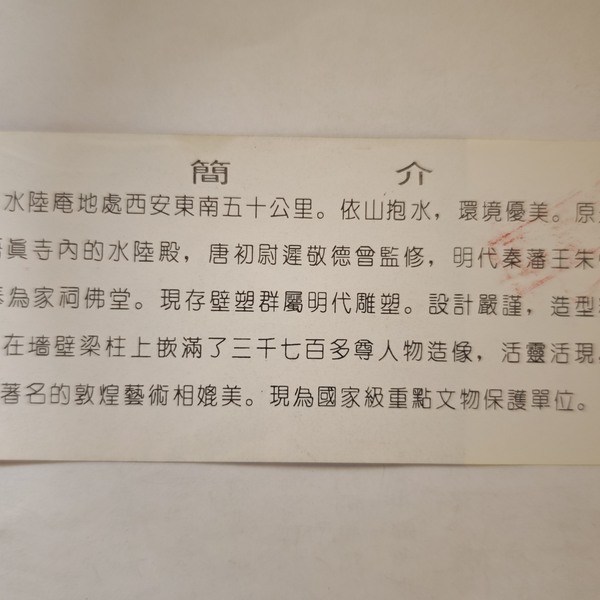 簡 介
水陸庵地處西安東南五十公里。依山抱水，環境優美。原
真寺內的水陸殿，唐初尉遲敬德曾監修，明代秦藩王朱
為家祠佛堂。現存壁塑群屬明代雕塑。設計嚴謹，造型
在墻壁梁柱上嵌滿了三千七百多尊人物造像，活靈活現
著名的敦煌藝術相媲美。現為國家級重點文物保護單位。